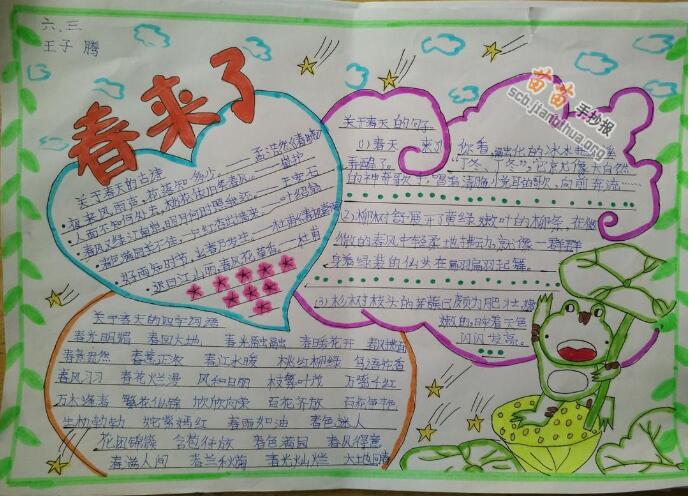 六.三
王子腾
春来了
苗苗手抄报
scb.jianbihua.org
关于春天的古诗
夜来风雨声,花落知多少。——孟浩然《春晓》
人面不知何处去,桃花依旧笑春风。——崔护
春风又绿江南岸,明月何时照我还。——王安石
春色满园关不住,一只红杏出墙来。——叶绍翁
好雨知时节,当春乃发生。——杜甫
迟日江山丽,春风花草香。——杜甫
关于春天的句子
(1)春天 来了 你看,融化的冰水
"丁冬、丁冬",它
的神奇歌手,唱着清脆 的歌,向前奔流……
(2)柳树舒展开了黄绿嫩叶的柳条,在微
微的春风中轻柔地 就像一群群
身着绿装的仙女在翩翩起舞。
(3)杉树枝头的芽 已颇为肥壮,嫩
嫩的,映着天色
闪闪发亮。
关于春天的四字词语
春光明媚 春回大地 春光融融 春暖花开 春风拂面
春意盎然 春意正浓 春江水暖 桃红柳绿 鸟语花香
春风习习 春花烂漫 风和日丽 枝繁叶茂 万紫千红
万木逢春 繁花似锦 欣欣向荣 百花齐放 百花争艳
生机勃勃 姹紫嫣红 春雨如油 春色迷人
花团锦簇 含苞待放 春色满园 春风得意
春满人间 春兰秋菊 春光灿烂 大地回春